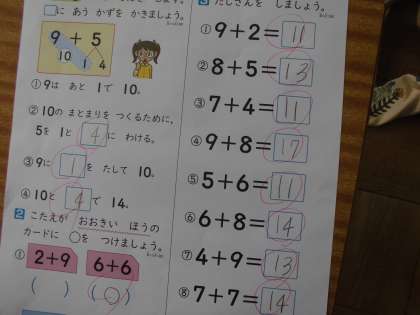 □に あう かずを かきましょう。
9 + 5
10 1 4
①9は あと 1で 10。
②10の まとまりを つくるために、
5を 1と 4に わける。
③9に 1を たして 10。
④10と 4で 14。
2 こたえが おおきい ほうの
カードに ○を つけましょう。
① 2+9 6+6
( ) (○)
3 たしざんを しましょう。
①9+2=11
②8+5=13
③7+4=11
④9+8=17
⑤5+6=11
⑥6+8=14
⑦4+9=13
⑧7+7=14